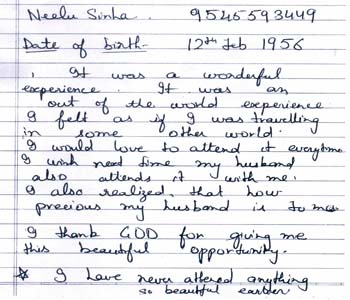 Neelu Sinha. 9545593449
Date of birth- 12th Feb 1956
, It was a wonderful
experience. It was an
out of the world experience
I felt as if I was travelling
in some other world.
I would love to attend it everytime
I wish next time my husband
also attends it with me.
I also realized that how
precious my husband is to me.
I thank GOD for giving me
this beautiful opportunity.
* I have never attened anything
so beautiful earlier